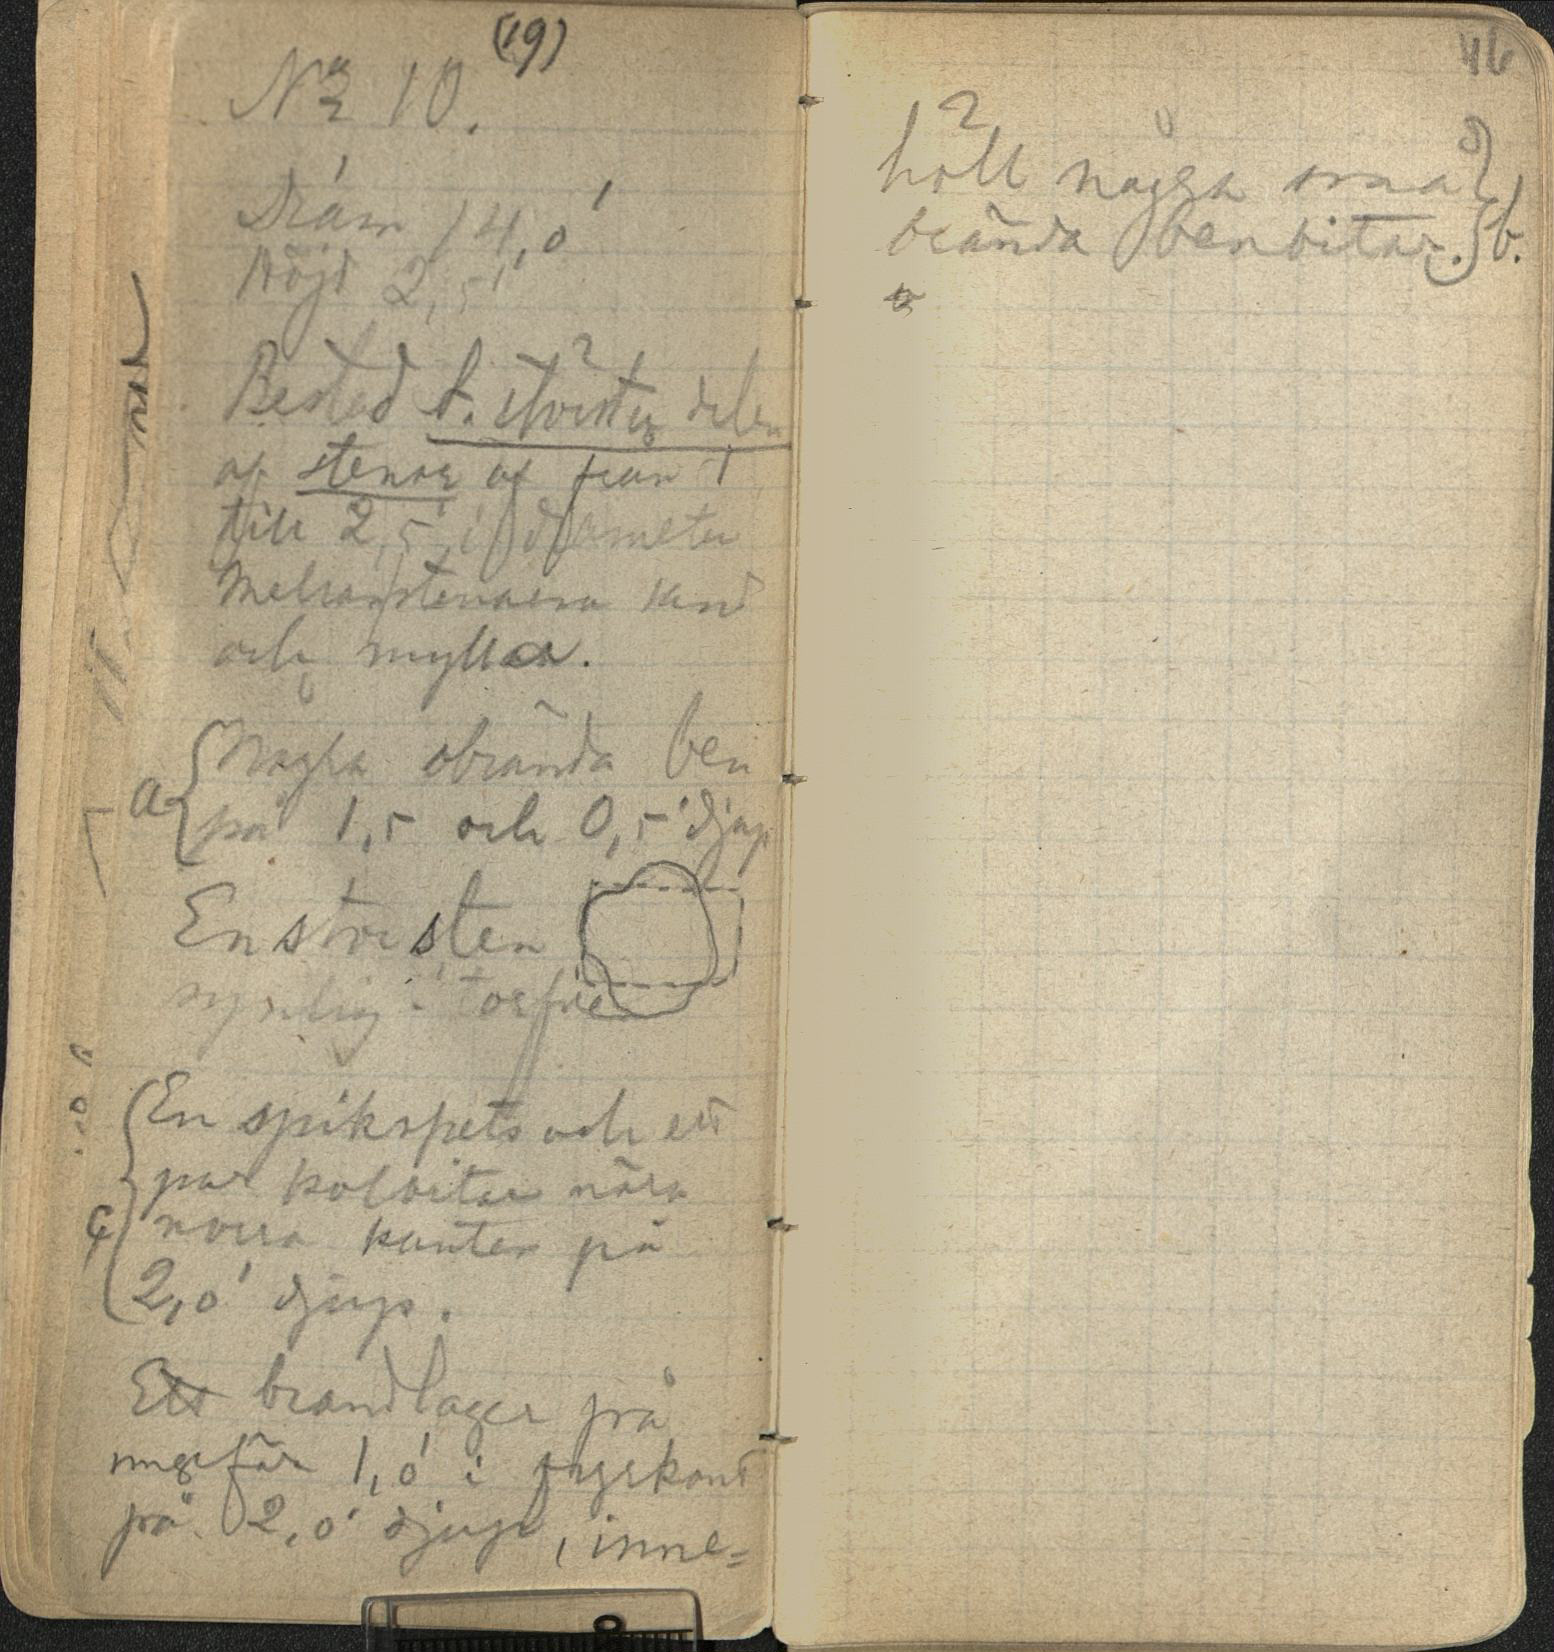 (19)
No 10.
Diam 14,0'
Höjd 2,5'
Bestod t. största delen
af stenar af från 1
till 2,5' i diameter
Mellan stenarna sand
och mylla.
a { Några obrända ben
på 1,5 och 0,5' djup
En stor sten
synlig i torfven
c { En spikspets och ett
par kolbitar nära
norra kanten på
2,0' djup.
Ett brandlager på
ungefär 1,0' i fyrkant
på 2,0' djup, inne=
46
höll några små
brända benbitar. } b.